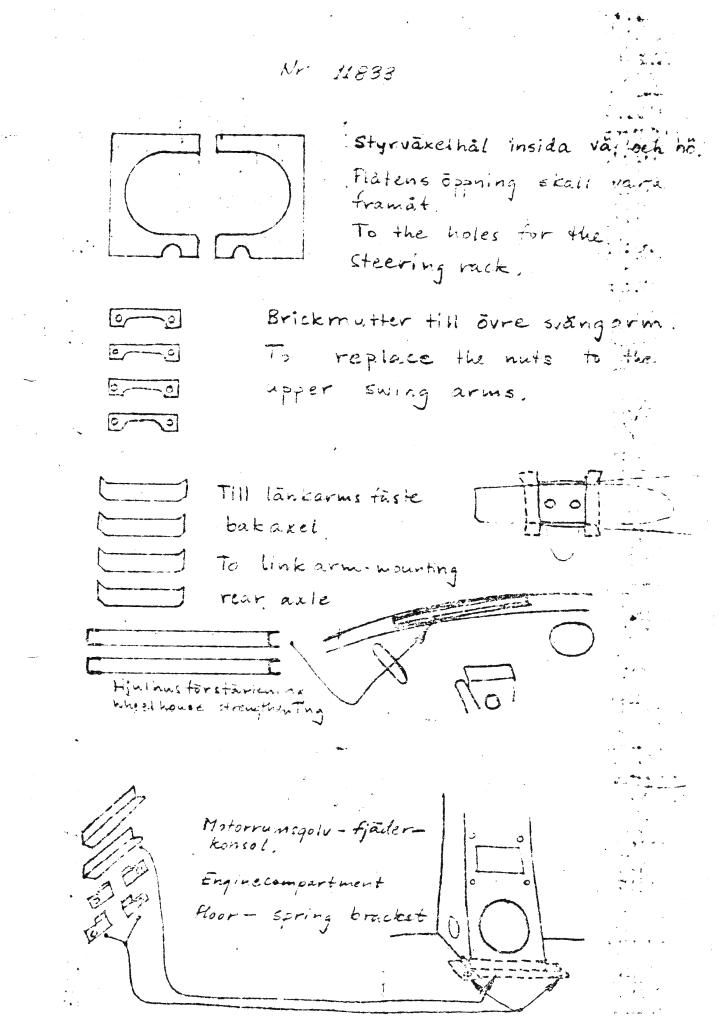 Nr 11833
Styrväxelhål insida vä. och hö.
Plåtens öppning skall vara
framåt.
To the holes for the
Steering rack.
Brickmutter till övre svängarm.
To replace the nuts to the
upper swing arms.
Till länkarms fäste
bakaxel.
To link arm-mounting
rear axle
Hjulhusförstärkning
wheelhouse strengthening
Motorrumsgolv - fjäder-
konsol.
Enginecompartment
floor - spring bracket